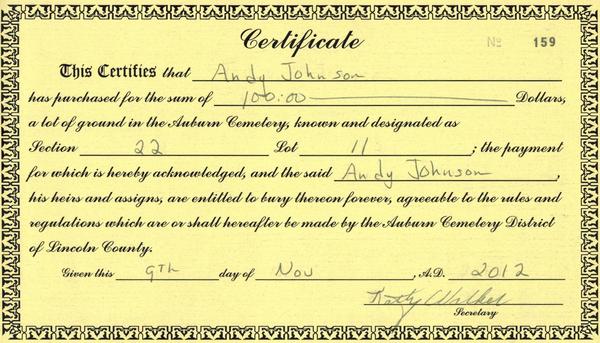 Certificate
No 159
This Certifies that Andy Johnson
has purchased for the sum of 100.00 Dollars,
a lot of ground in the Auburn Cemetery, known and designated as
Section 22 Lot 11; the payment
for which is hereby acknowledged, and the said Andy Johnson,
his heirs and assigns, are entitled to bury thereon forever, agreeable to the rules and
regulations which are or shall hereafter be made by the Auburn Cemetery District
of Lincoln County.
Given this 9Th day of Nov, A.D. 2012
Walker
Secretary